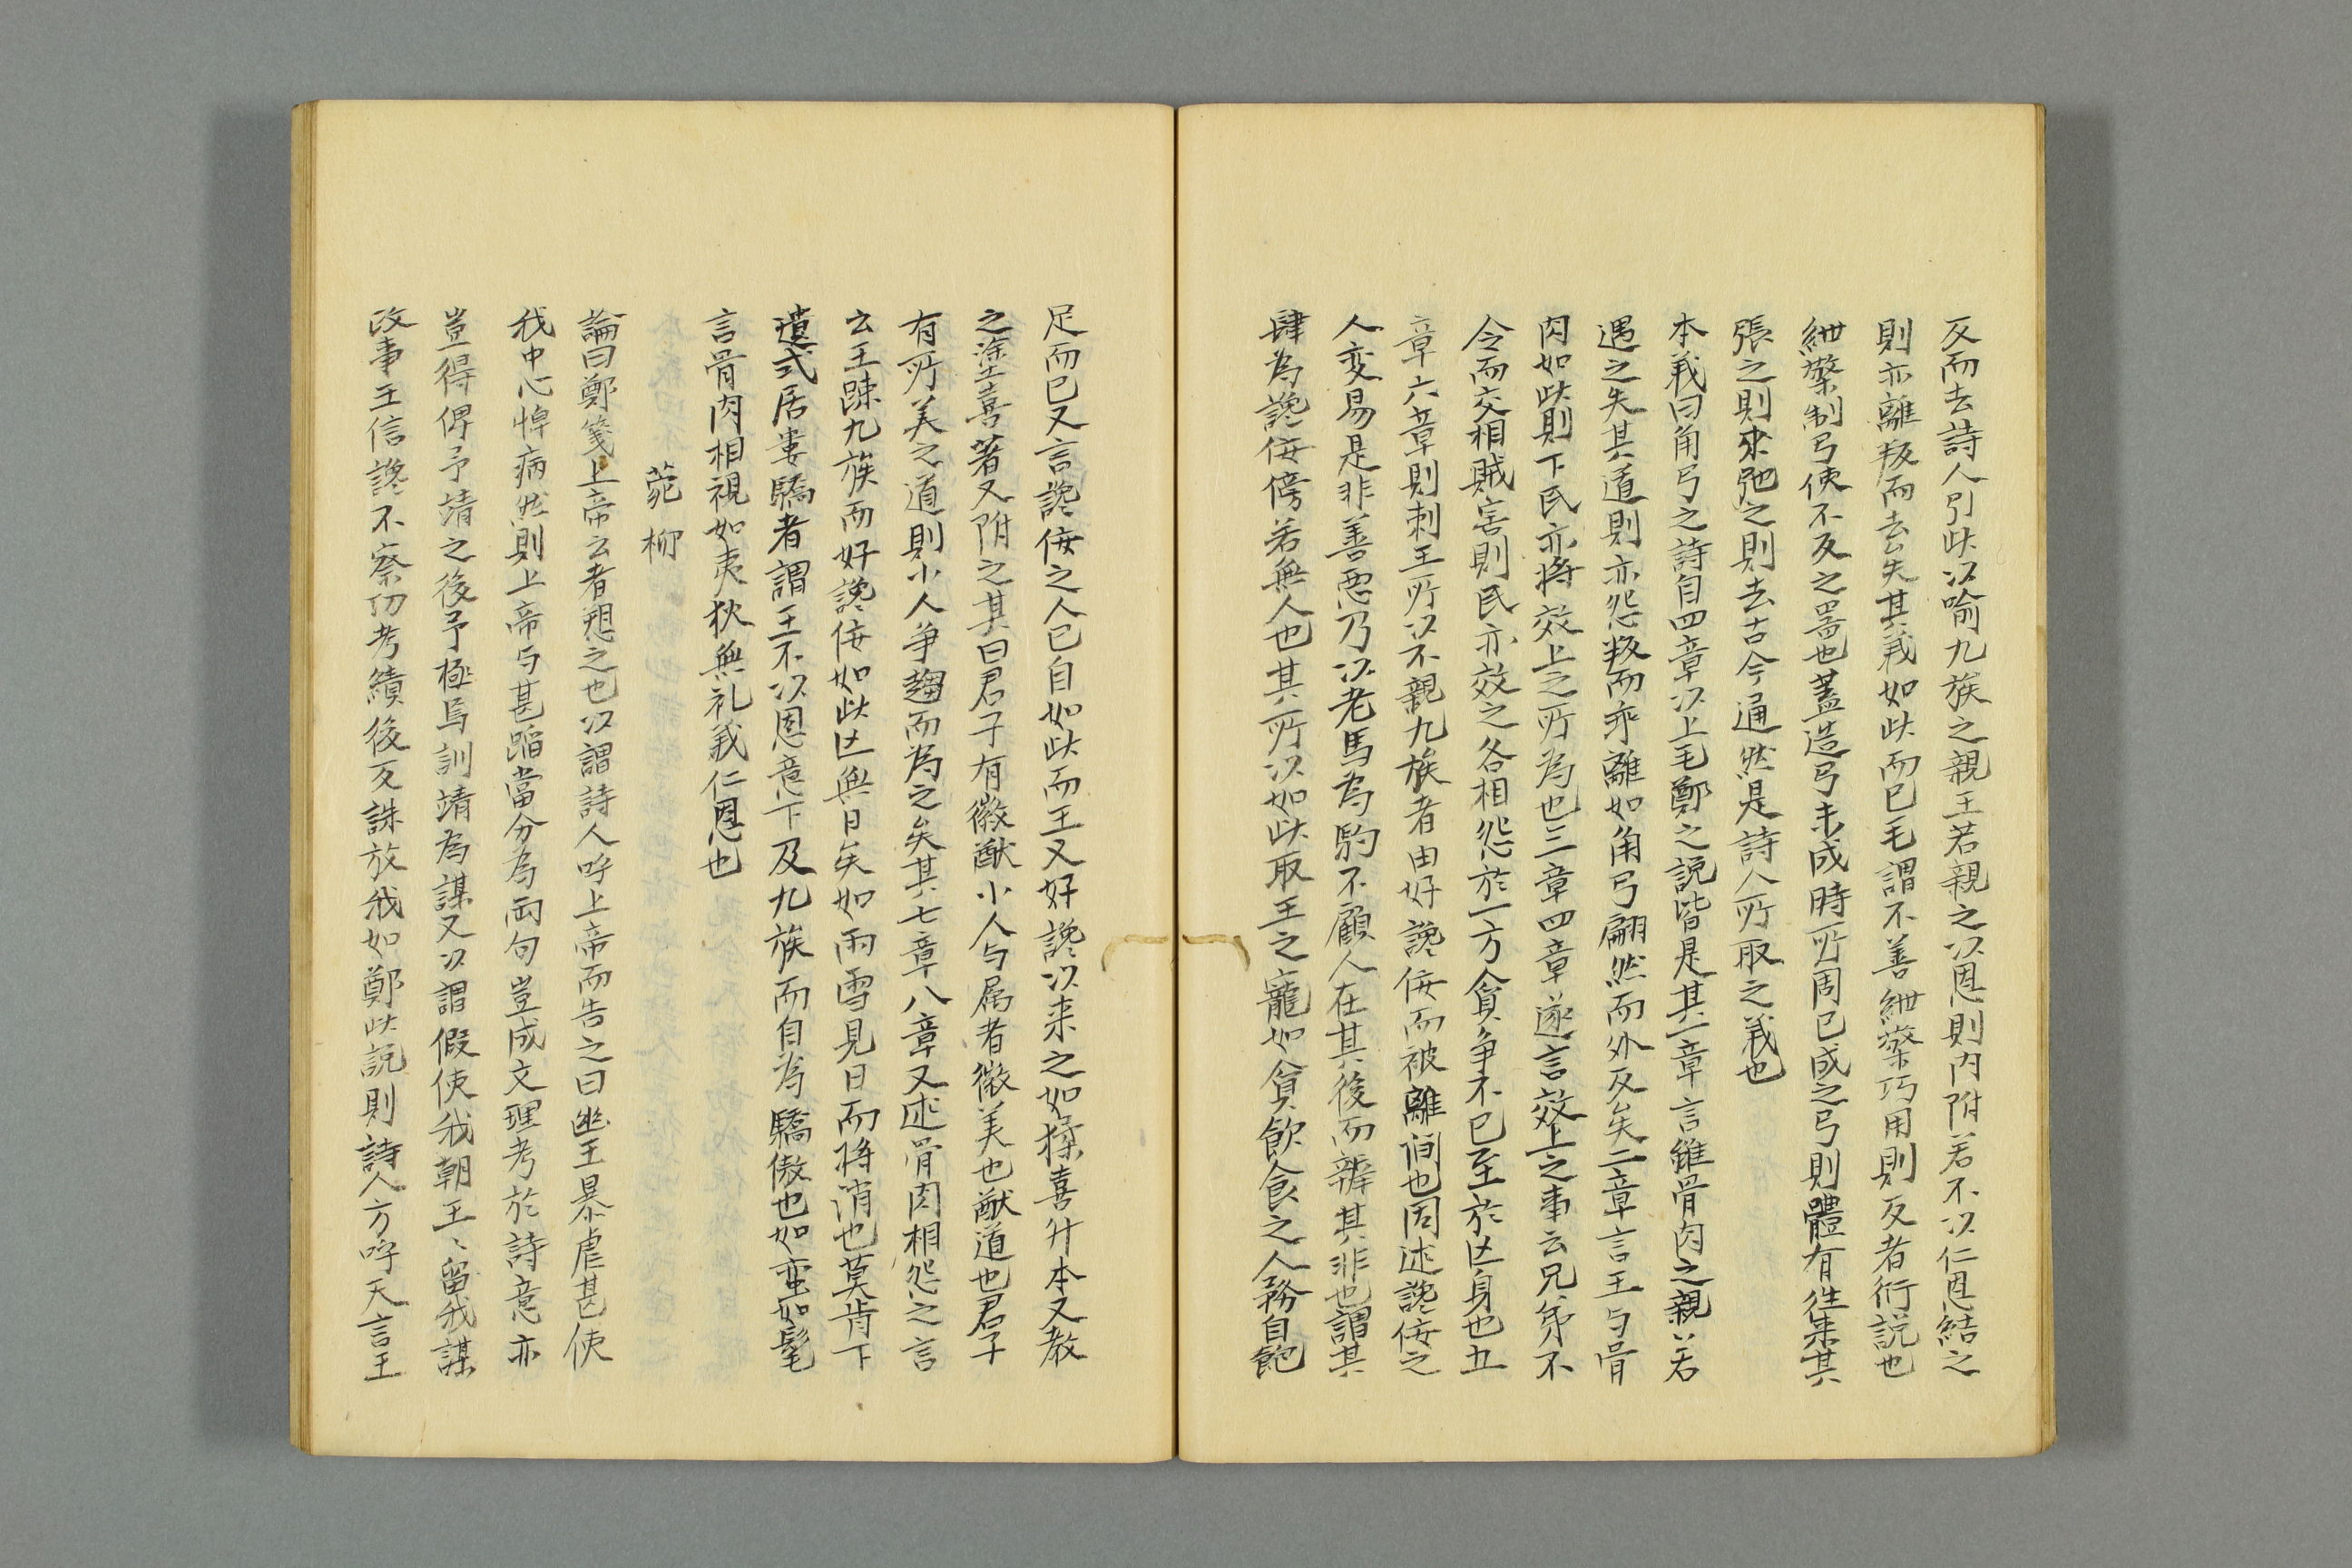 反而去詩人引此以喻九族之親王若親之以恩則内附若不以仁恩結之
則亦離叛而去矣其義如此而已毛謂不善紲檠巧用則反者衍説也
紲檠制弓使不反之噐也蓋造弓未成時所用已成之弓則體有往来其
張之則来弛之則去古今通然是詩人所取之義也
本義曰角弓之詩自四章以上毛鄭之説皆是其一章言雖骨肉之親若
遇之失其道則亦怨叛而乖離如角弓翩然而外反矣二章言王与骨
肉如此則下民亦将效上之所為也三章四章遂言效上之事云兄弟不
令而交相賊害則民亦效之各相怨於一方貪争不已至於亡身也五
章六章則刺王所以不親九族者由好讒佞而被離間也因述讒佞之
人変易是非善悪乃以老馬為駒不顧人在其後而辨其非也謂其
肆為讒侮傍若無人也其所以如此取王之寵如貪飲食之人務自飽
足而已又言讒佞之人已自如此而王又好讒以来之如猱喜升木又教
之塗善著又附之其曰君子有徽猷小人与属者徽美也猷道也君子
有所美之道則小人争趨而為之矣其七章八章又述骨肉相怨之言
云王踈九族而好讒佞如此亡無日矣如雨雪見日而将消也莫肯下
遺式居婁驕者謂王不以恩意下及九族而自為驕傲也如蛮如髦
言骨肉相視如夷狄無礼義仁恩也
菀柳
論曰鄭箋上帝云者愬之也以謂詩人呼上帝而告之曰幽王暴虐甚使
我中心悼病然則上帝与甚蹈當分為両句豈成文理考於詩意亦
豈得俾予靖之後予極焉訓靖為謀又以謂假使我朝王〻留我謀
政事王信讒不察功考績後反誅放我如鄭此説則詩人方呼天言王